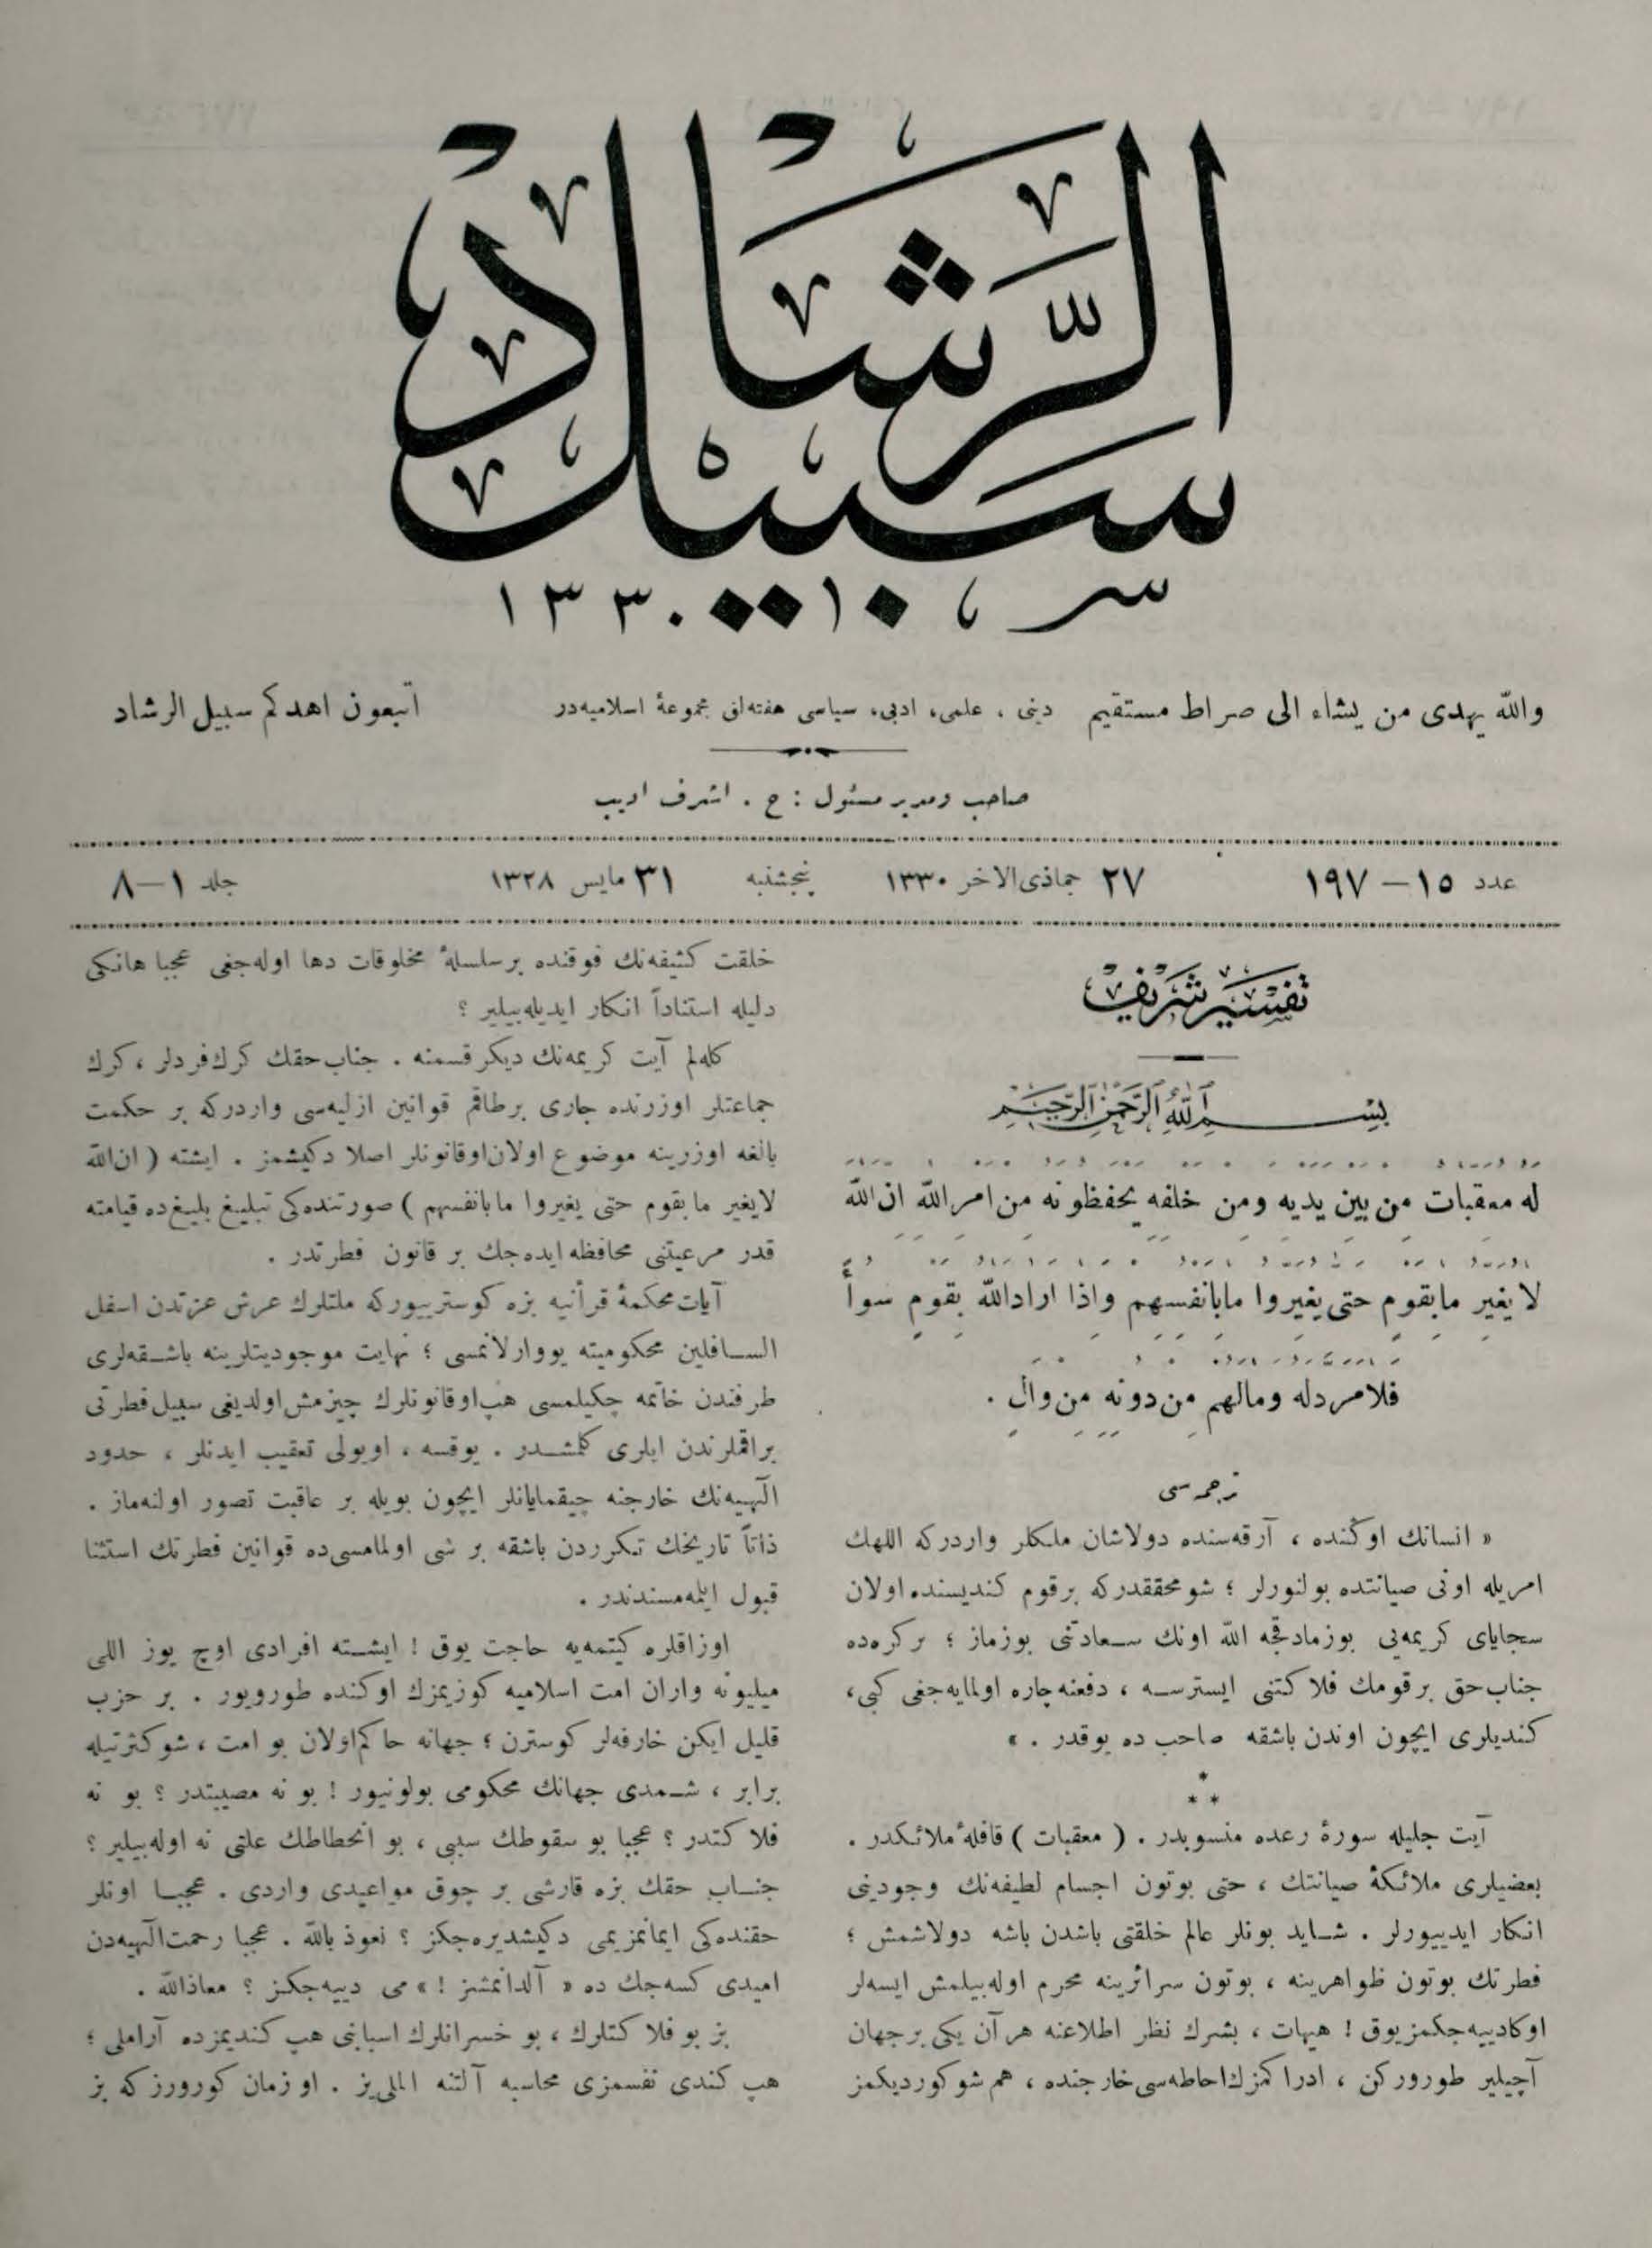 سبيل الرشاد
١٣٣٠
والله يهدى من يشاء الى صراط مستقيم
دينى ، علمى، ادبى، سياسى هفته‌لق مجموعهٔ اسلاميه‌در
اتبعون اهدكم سبيل الرشاد
صاحب ومدير مسئول : ح . اشرف اديب
عدد ١٥ — ١٩٧
٢٧ جماذى‌الاخر ١٣٣٠
پنجشنبه
٣١ مايس ١٣٢٨
جلد ١—٨
تفسير شريف
بسم الله الرحمن الرحيم
له معقبات من بين يديه ومن خلفه يحفظونه من امر الله ان الله
لا يغير مابقوم حتى يغيروا مابانفسهم واذا ارادالله بقوم سوأ
فلامردله ومالهم من دونه من وال .
ترجمه سى
« انسانك اوكنده ، آرقه‌سنده دولاشان ملكلر واردركه اللهك
امريله اونى صيانتده بولنورلر ؛ شو محققدركه برقوم كنديسنده اولان
سجاياى كريمه‌يى بوزمادقجه الله اونك سعادتنى بوزماز ؛ بركره‌ده
جناب حق برقومك فلاكتنى ايسترسه ، دفعنه چاره اولمايه‌جغى كبى،
كنديلرى ايچون اوندن باشقه صاحب ده يوقدر . »
* * *
آيت جليله سورهٔ رعده منسوبدر . ( معقبات ) قافلهٔ ملائكدر .
بعضيلرى ملائكهٔ صيانتك ، حتى بوتون اجسام لطيفه‌نك وجودينى
انكار ايدييورلر . شايد بونلر عالم خلقتى باشدن باشه دولاشمش ؛
فطرتك بوتون ظواهرينه ، بوتون سرائرينه محرم اوله‌بيلمش ايسه‌لر
اوكادييه‌جكمز يوق ! هيهات ، بشرك نظر اطلاعنه هر آن يكى برجهان
آچيلير طوروركن ، ادراكمزك احاطه‌سى خارجنده ، هم شو كورديكمز
خلقت كثيفه‌نك فوقنده بر سلسلهٔ مخلوقات دها اوله‌جغى عجبا هانكى
دليله استناداً انكار ايديله‌بيلير ؟
كله‌لم آيت كريمه‌نك ديكر قسمنه . جناب حقك كرك فردلر ، كرك
جماعتلر اوزرنده جارى برطاقم قوانين ازليه‌سى واردركه بر حكمت
بالغه اوزرينه موضوع اولان او قانونلر اصلا دكيشمز . ايشته ( ان الله
لايغير مابقوم حتى يغيروا مابانفسهم ) صورتنده‌كى تبليغ بليغ ده قيامته
قدر مرعيتنى محافظه ايده‌جك بر قانون فطرتدر .
آيات محكمهٔ قرأنيه بزه كوسترييوركه ملتلرك عرش عزتدن اسفل
السافلين محكوميته يووارلانمسى ؛ نهايت موجوديتلرينه باشقه‌لرى
طرفندن خاتمه چكيلمسى هپ او قانونلرك چيزمش اولديغى سبيل فطرتى
براقملرندن ايلرى كلمشدر . يوقسه ، اويولى تعقيب ايدنلر ، حدود
الهيه‌نك خارجنه چيقمايانلر ايچون بويله بر عاقبت تصور اولنه‌ماز .
ذاتاً تاريخك تكرردن باشقه بر شى اولمامسى ده قوانين فطرتك استثنا
قبول ايله‌مسندندر .
اوزاقلره كيتمه‌يه حاجت يوق ! ايشته افرادى اوچ يوز اللى
ميليونه واران امت اسلاميه كوزيمزك اوكنده طورويور . بر حزب
قليل ايكن خارقه‌لر كوسترن ؛ جهانه حاكم اولان بو امت ، شو كثرتيله
برابر ، شمدى جهانك محكومى بولونيور ! بو نه مصيبتدر ؟ بو نه
فلاكتدر ؟ عجبا بو سقوطك سببى ، بو انحطاطك علتى نه اوله‌بيلير ؟
جناب حقك بزه قارشى بر چوق مواعيدى واردى . عجبا اونلر
حقنده‌كى ايمانمزيمى دكيشديره‌جكز ؟ نعوذ بالله . عجبا رحمت الهيه‌دن
اميدى كسه‌جك ده « آلدانمشز ! » مى دييه‌جكز ؟ معاذالله .
بز بو فلاكتلرك ، بو خسرانلرك اسبابنى هپ كنديمزده آراملى ؛
هپ كندى نفسمزى محاسبه آلتنه المليز . او زمان كورورزكه بز